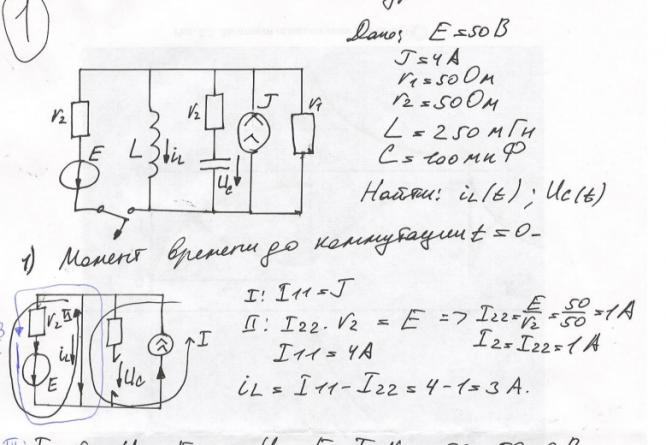 1
Дано: E = 50 В
J = 4 А
r1 = 50 Ом
r2 = 50 Ом
L = 250 мГн
C = 100 мкФ
Найти: iL(t); Uc(t)
r2 E L iL r2 Uc J r1
1) Момент времени до коммутации t = 0-
r2 II iL E Uc I
I: I11 = J
II: I22 · r2 = E => I22 = E/r2 = 50/50 = 1 А
I11 = 4 А I2 = I22 = 1 А
iL = I11 - I22 = 4 - 1 = 3 А.